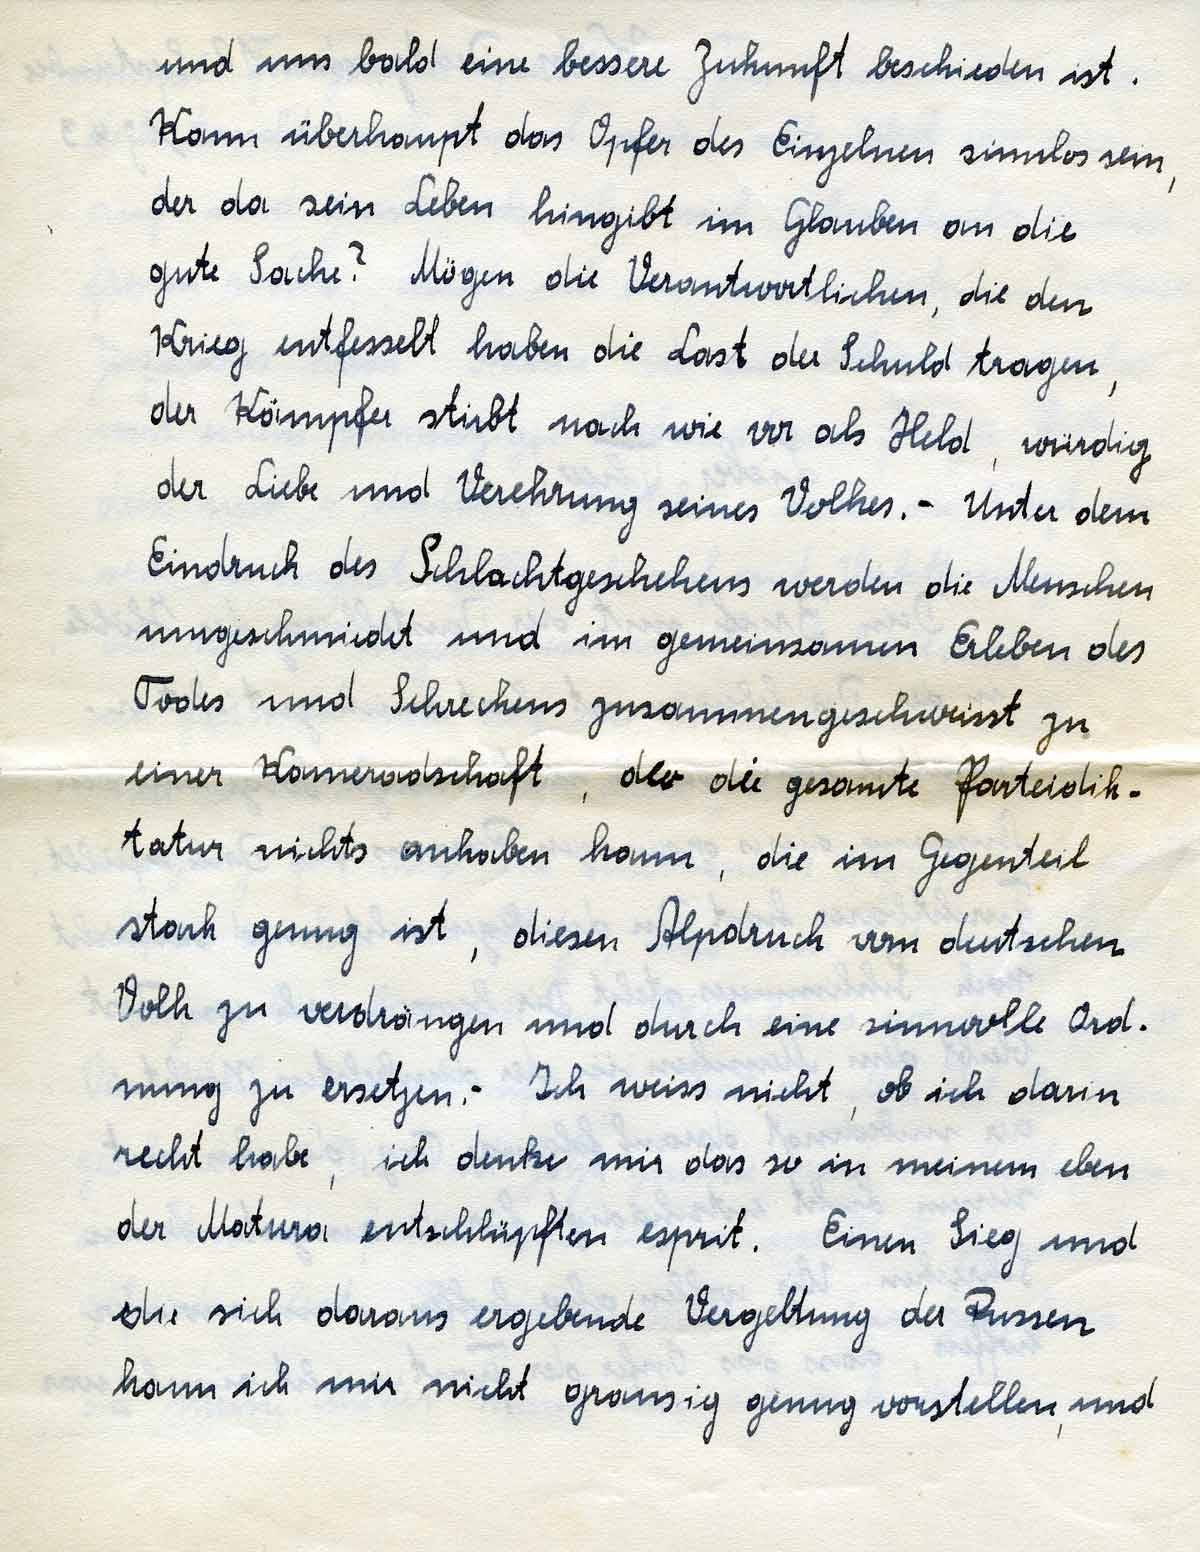 und uns bald eine bessere Zukunft beschieden ist.
Kann überhaupt das Opfer des Einzelnen sinnlos sein,
der da sein Leben hingibt im Glauben an die
gute Sache? Mögen die Verantwortlichen, die den
Krieg entfesselt haben die Last der Schuld tragen,
der Kämpfer stirbt nach wie vor als Held, würdig
der Liebe und Verehrung seines Volkes.- Unter dem
Eindruck des Schlachtgeschehens werden die Menschen
umgeschmiedet und im gemeinsamen Erleben des
Todes und Schreckens zusammengeschweisst zu
einer Kameradschaft, der die gesamte Parteidik-
tatur nichts anhaben kann, die im Gegenteil
stark genug ist, diesen Alpdruck vom deutschen
Volk zu verdrängen und durch eine sinnvolle Ord-
nung zu ersetzen.- Ich weiss nicht, ob ich darin
recht habe, ich denke mir das so in meinem eben
der Matura entschlüpften esprit. Einen Sieg und
die sich daraus ergebende Vergeltung der Russen
kann ich mir nicht grausig genug vorstellen, und